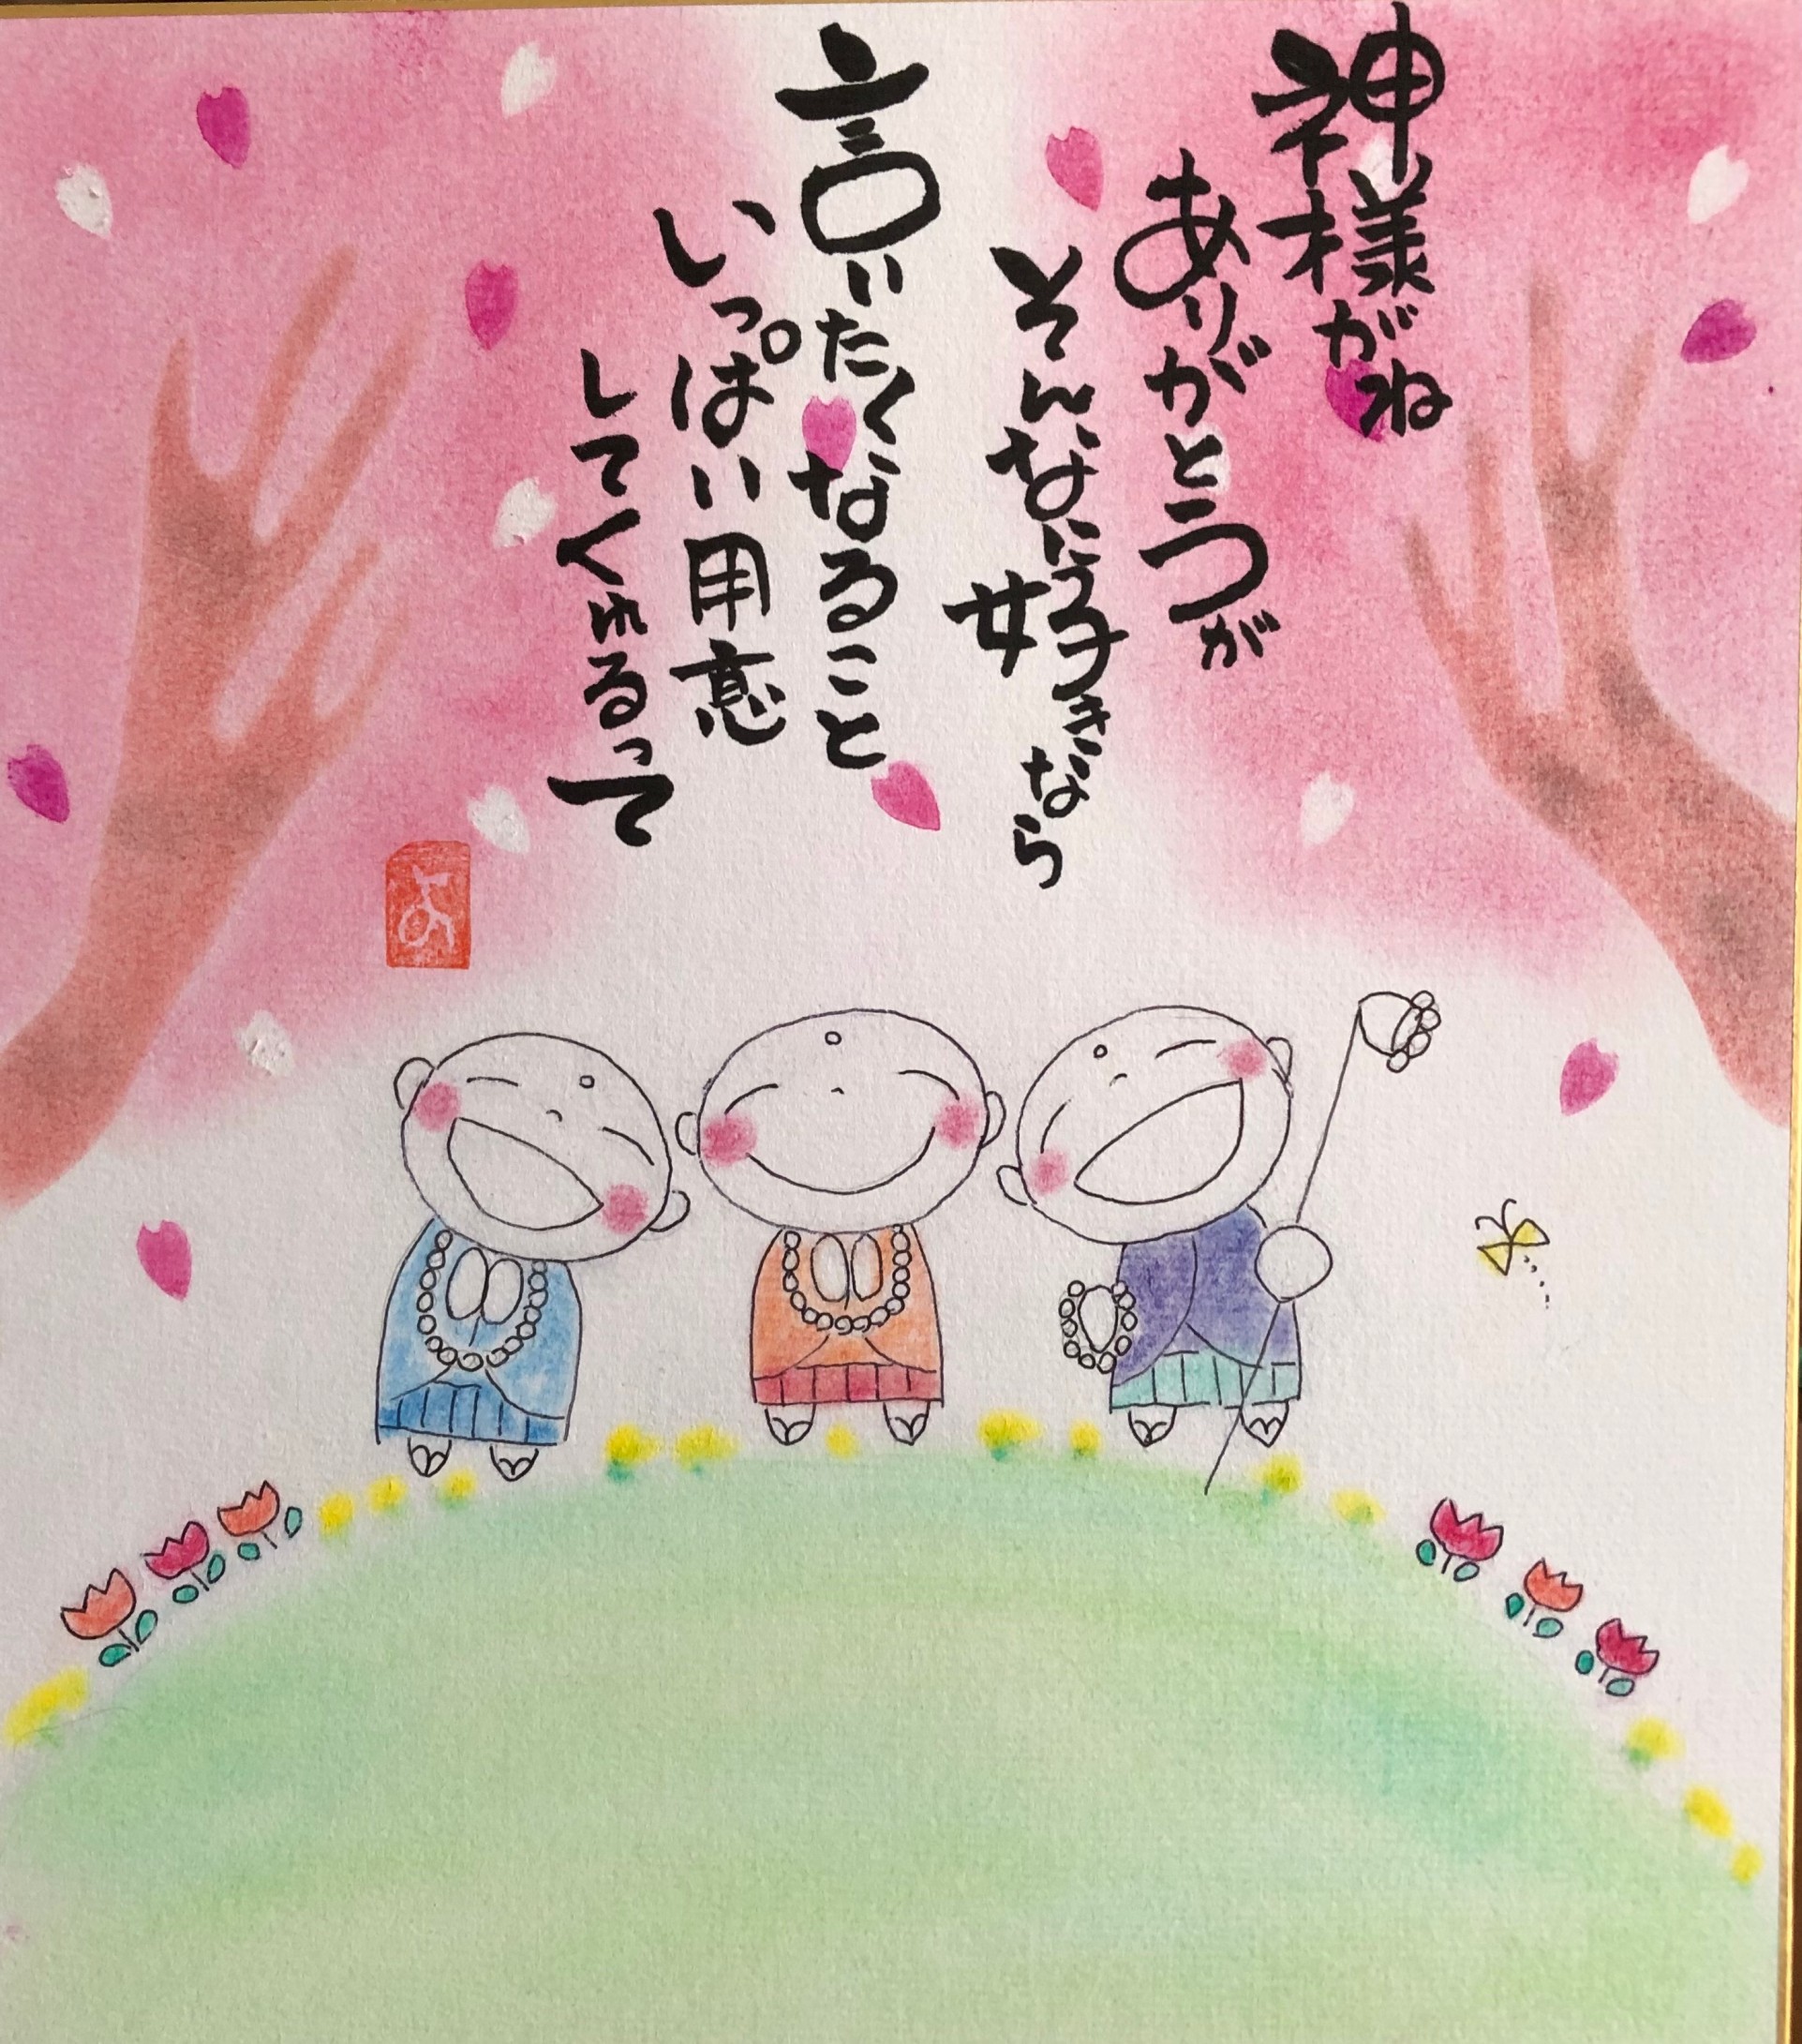 神様がね
ありがとうが
そんなに好きなら
言いたくなること
いっぱい用意
してくれるって
よ